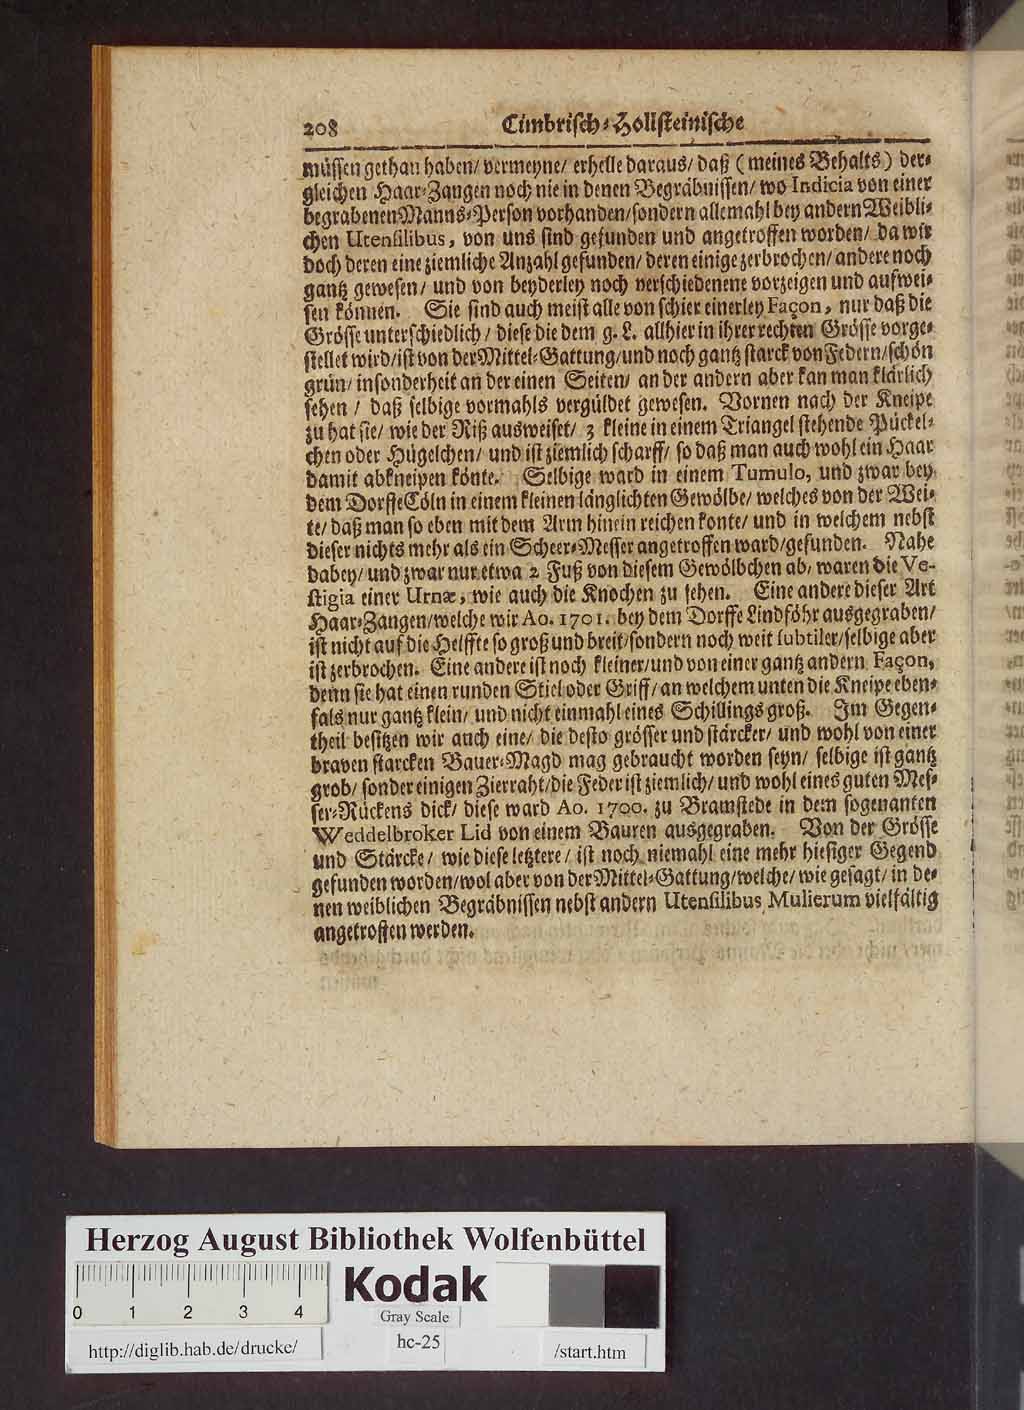 208 Cimbrisch-Hollsteinische
müssen gethan haben/ vermeyne/ erhelle daraus/ daß (meines Behalts) der-
gleichen Haar-Zangen noch nie in denen Begräbnissen/ wo Indicia von einer
begrabenen Manns-Person vorhanden/ sondern allemahl bey andern Weibli-
chen Utensilibus, von uns sind gefunden und angetroffen worden/ da wir
doch deren eine ziemliche Anzahl gefunden/ deren einige zerbrochen/ andere noch
gantz gewesen/ und von beyderley noch verschiedenene vorzeigen und aufwei-
sen können. Sie sind auch meist alle von schier einerley Façon, nur daß die
Grösse unterschiedlich/ diese die dem g. L. allhier in ihrer rechten Grösse vorge-
stellet wird/ ist von der Mittel-Gattung/ und noch gantz starck von Federn/ schön
grün/ insonderheit an der einen Seiten/ an der andern aber kan man klärlich
sehen/ daß selbige vormahls vergüldet gewesen. Vornen nach der Kneipe
zu hat sie/ wie der Riß ausweiset/ 3 kleine in einem Triangel stehende Pückel-
chen oder Hügelchen/ und ist ziemlich scharff/ so daß man auch wohl ein Haar
damit abkneipen könte. Selbige ward in einem Tumulo, und zwar bey
dem Dorffe Cöln in einem kleinen länglichten Gewölbe/ welches von der Wei-
te/ daß man so eben mit dem Arm hinein reichen konte/ und in welchem nebst
dieser nichts mehr als ein Scheer-Messer angetroffen ward/ gefunden. Nahe
dabey/ und zwar nur etwa 2 Fuß von diesem Gewölbchen ab/ waren die Ve-
stigia einer Urnæ, wie auch die Knochen zu sehen. Eine andere dieser Art
Haar-Zangen/ welche wir Ao. 1701. bey dem Dorffe Lindföhr ausgegraben/
ist nicht auf die Helffte so groß und breit/ sondern noch weit subtiler/ selbige aber
ist zerbrochen. Eine andere ist noch kleiner/ und von einer gantz andern Façon,
denn sie hat einen runden Stiel oder Griff/ an welchem unten die Kneipe eben-
fals nur gantz klein/ und nicht einmahl eines Schillings groß. Im Gegen-
theil besitzen wir auch eine/ die desto grösser und stärcker/ und wohl von einer
braven starcken Bauer-Magd mag gebraucht worden seyn/ selbige ist gantz
grob/ sonder einigen Zierraht/ die Feder ist ziemlich/ und wohl eines guten Mes-
ser-Rückens dick/ diese ward Ao. 1700. zu Bramstede in dem sogenanten
Weddelbroker Lid von einem Bauren ausgegraben. Von der Grösse
und Stärcke/ wie diese letztere/ ist noch niemahl eine mehr hiesiger Gegend
gefunden worden/ wol aber von der Mittel-Gattung/ welche/ wie gesagt/ in de-
nen weiblichen Begräbnissen nebst andern Utensilibus Mulierum vielfältig
angetroffen werden.
Herzog August Bibliothek Wolfenbüttel
0 1 2 3 4
Kodak
Gray Scale
http://diglib.hab.de/drucke/ hc-25 /start.htm